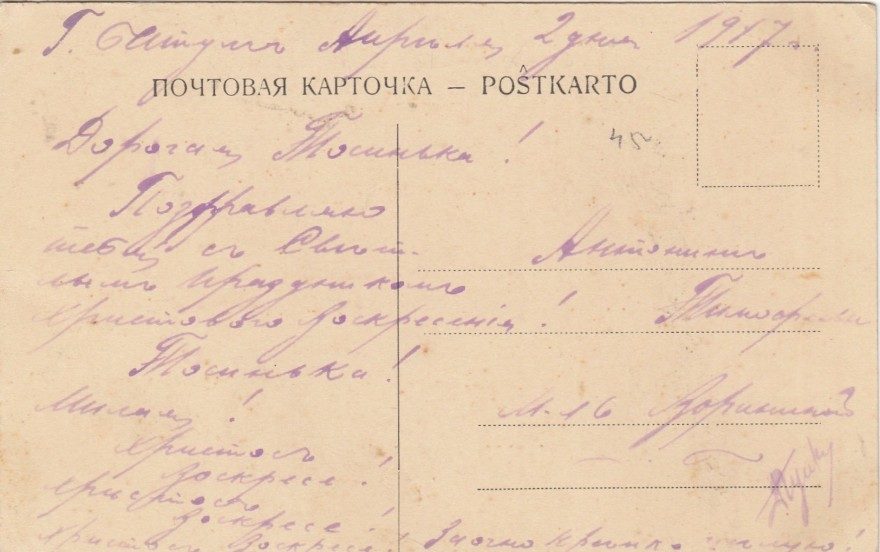 Г. Батумъ Апреля 2 дня 1917.
ПОЧТОВАЯ КАРТОЧКА — POŜTKARTO
45
Дорогая Тосинька!
Поздравляю
тебя съ Свѣт-
лымъ праздникомъ
Христового Воскресенія!
Тосинька!
Милая!
Христосъ
Воскресе!
Христосъ
Воскресе!
Христосъ Воскресе! Заочно крепко целую!
Антонинѣ